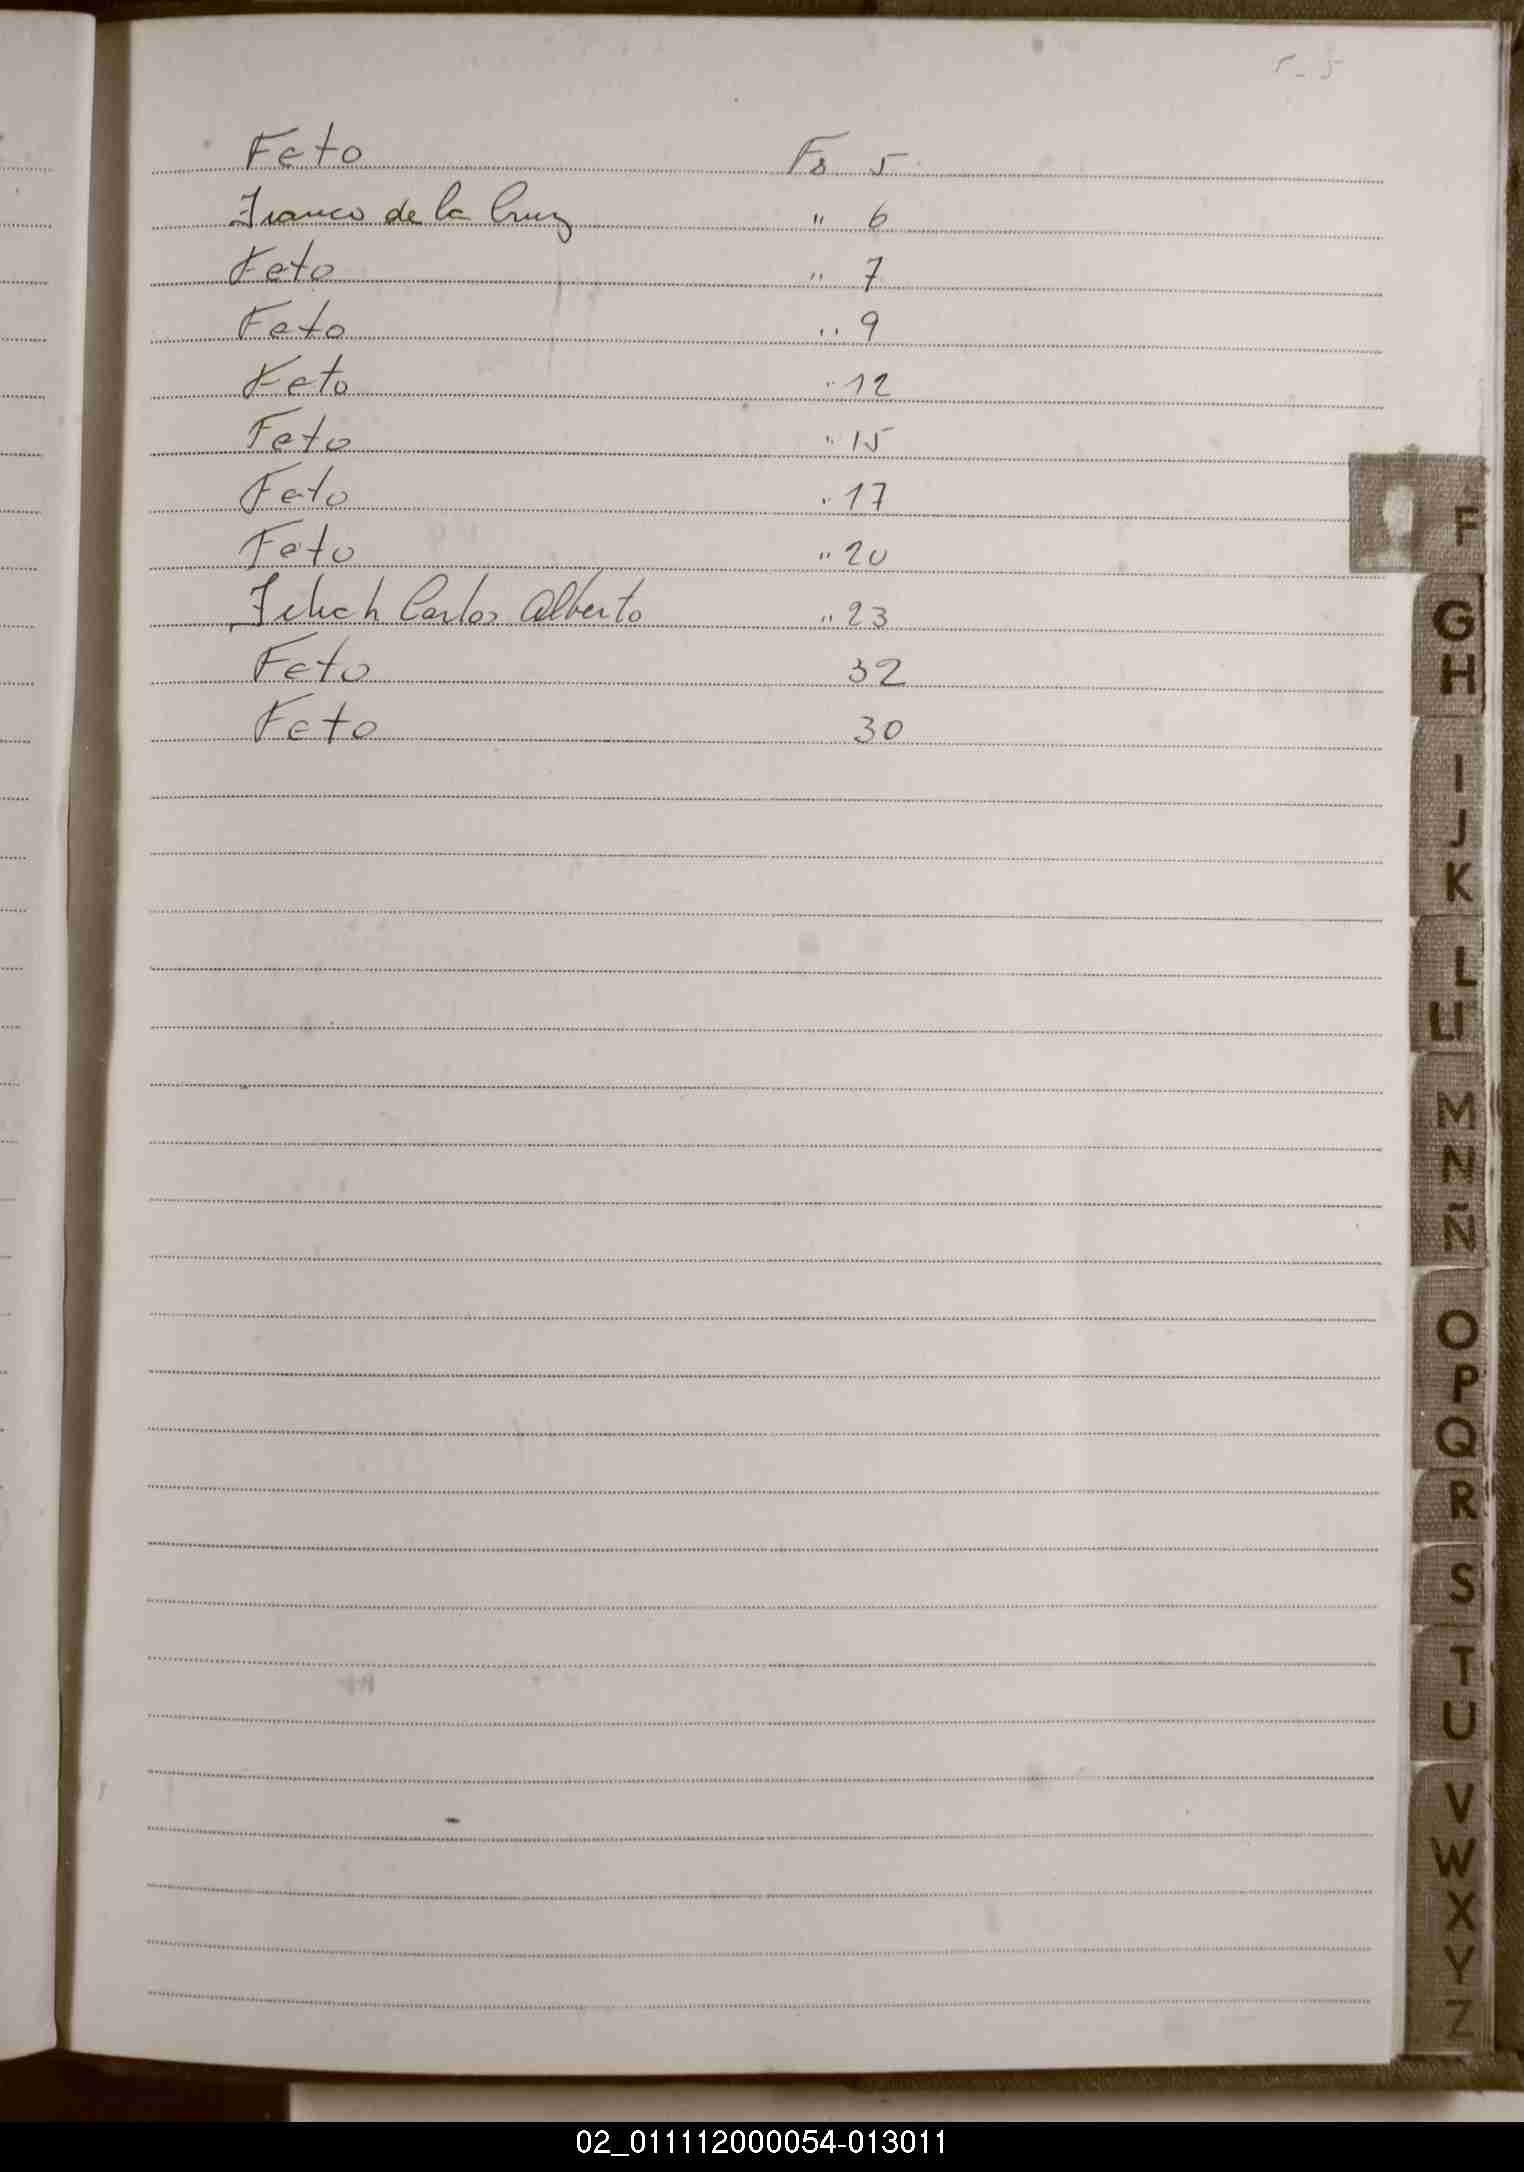 Feto Fs 5
Franco de la Cruz " 6
Feto " 7
Feto " 9
Feto " 12
Feto " 15
Feto " 17
Feto " 20
Carlos Alberto " 23
Feto 32
Feto 30
F
G
H
I
J
K
L
Ll
M
N
Ñ
O
P
Q
R
S
T
U
V
W
X
Y
Z
02_011112000054-013011